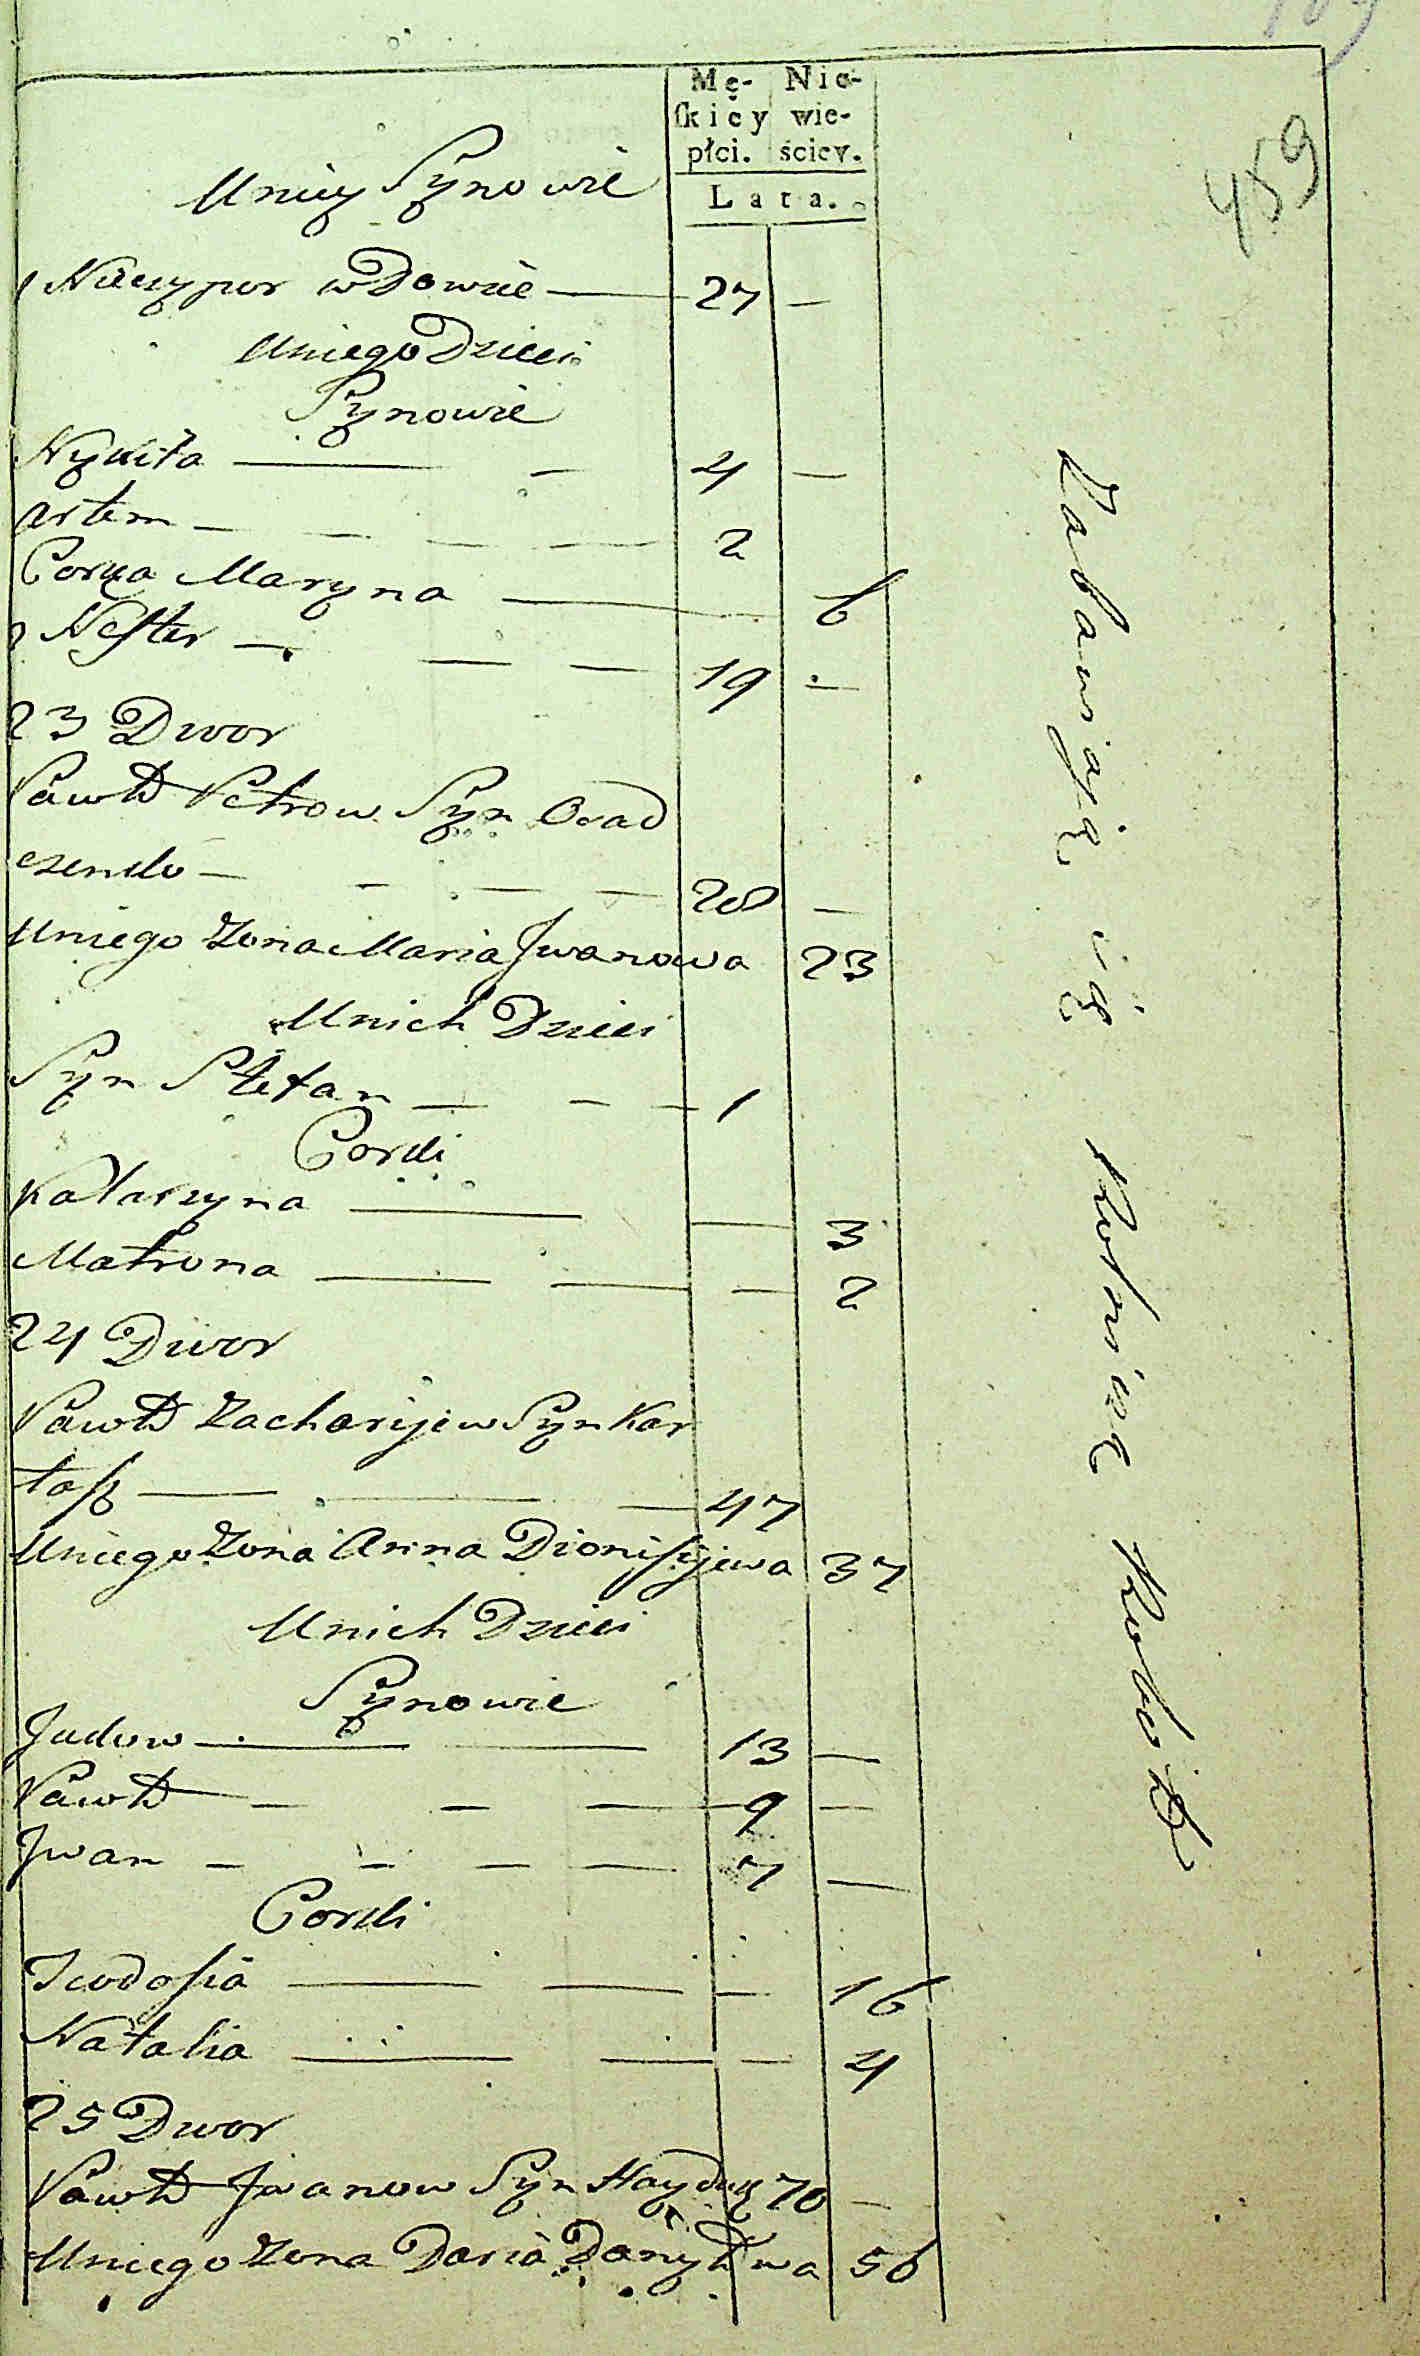 459
Mę- Nie-
ſkiey wie-
płci. ściey.
Lata.
Uniey Synowie
1 Niczypor wdowiec — 27 —
Uniego Dzieci
Synowie
Nykita — 4 —
Artem — 2
Corka Maryna — 6
2 Nester — 19 —
23 Dwor
Pawło Petrow Syn Osad
czenko — 28 —
Uniego Zona Maria Jwanowa 23
Unich Dzieci
Syn Stefan — 1
Corki
Katarzyna — 3
Matrona — 2
24 Dwor
Pawło Zacharijew Syn Kar
tasz — 47
Uniego Zona Anna Dionisijewa 37
Unich Dzieci
Synowie
Jadow — 13 —
Pawło — 9 —
Jwan — 7 —
Corki
Teodosia — 16
Natalia — 4
25 Dwor
Pawło Jwanow Syn Hayduk 70 —
Uniego Zona Daria Danyłowa 56
Zabawiaią się Rolniczą Robotą